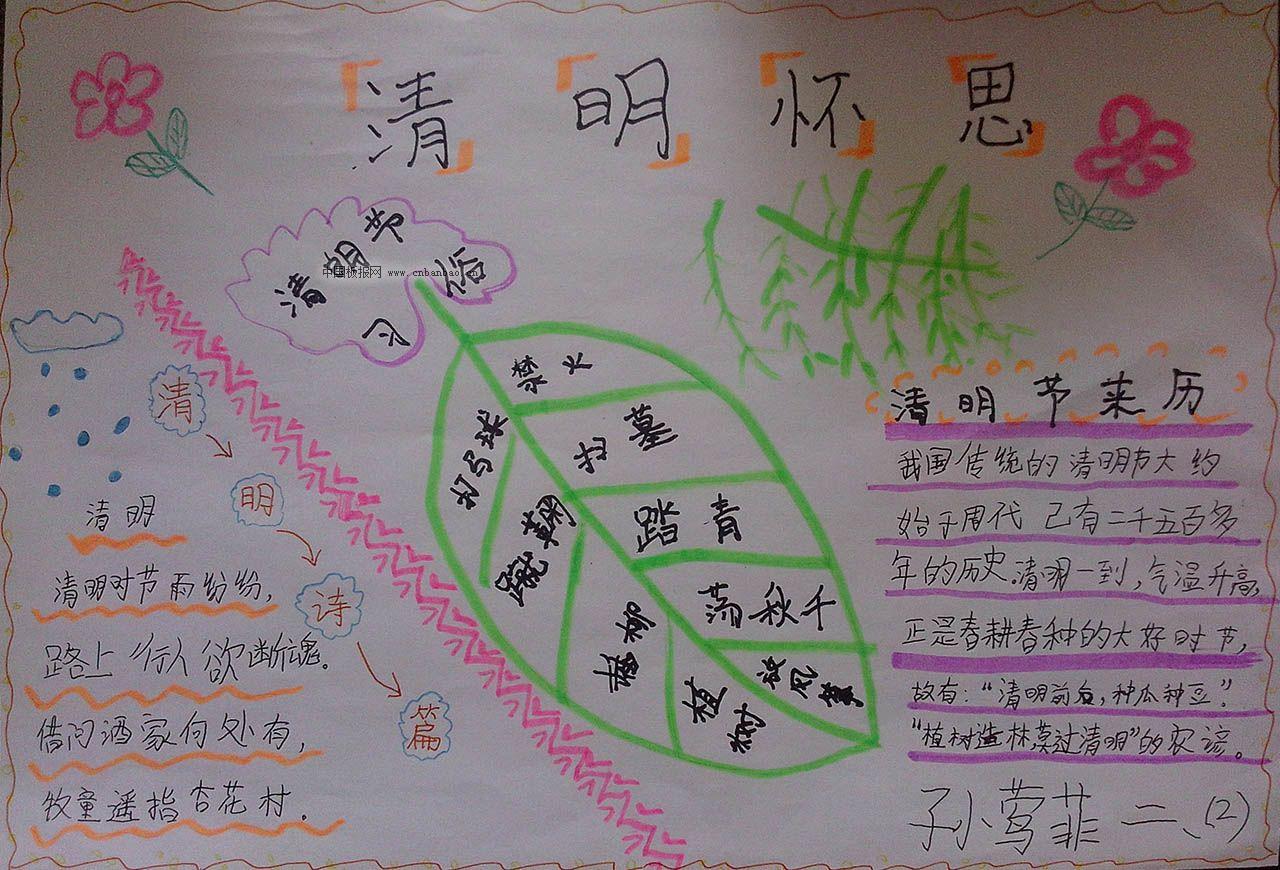 清明怀思
清明节
习俗
中国板报网 www.cnbanbao.cn
清明诗篇
清明
清明时节雨纷纷,
路上行人欲断魂。
借问酒家何处有,
牧童遥指杏花村.
禁火
扫墓
踏青
荡秋千
放风筝
打马球
蹴鞠
插柳
植树
清明节来历
我国传统的清明节大约
始于周代 已有二千五百多
年的历史.清明一到,气温升高,
正是春耕春种的大好时节,
故有:“清明前后,种瓜种豆”.
“植树造林,莫过清明”的农谚。
孙小莺菲 二、(2)